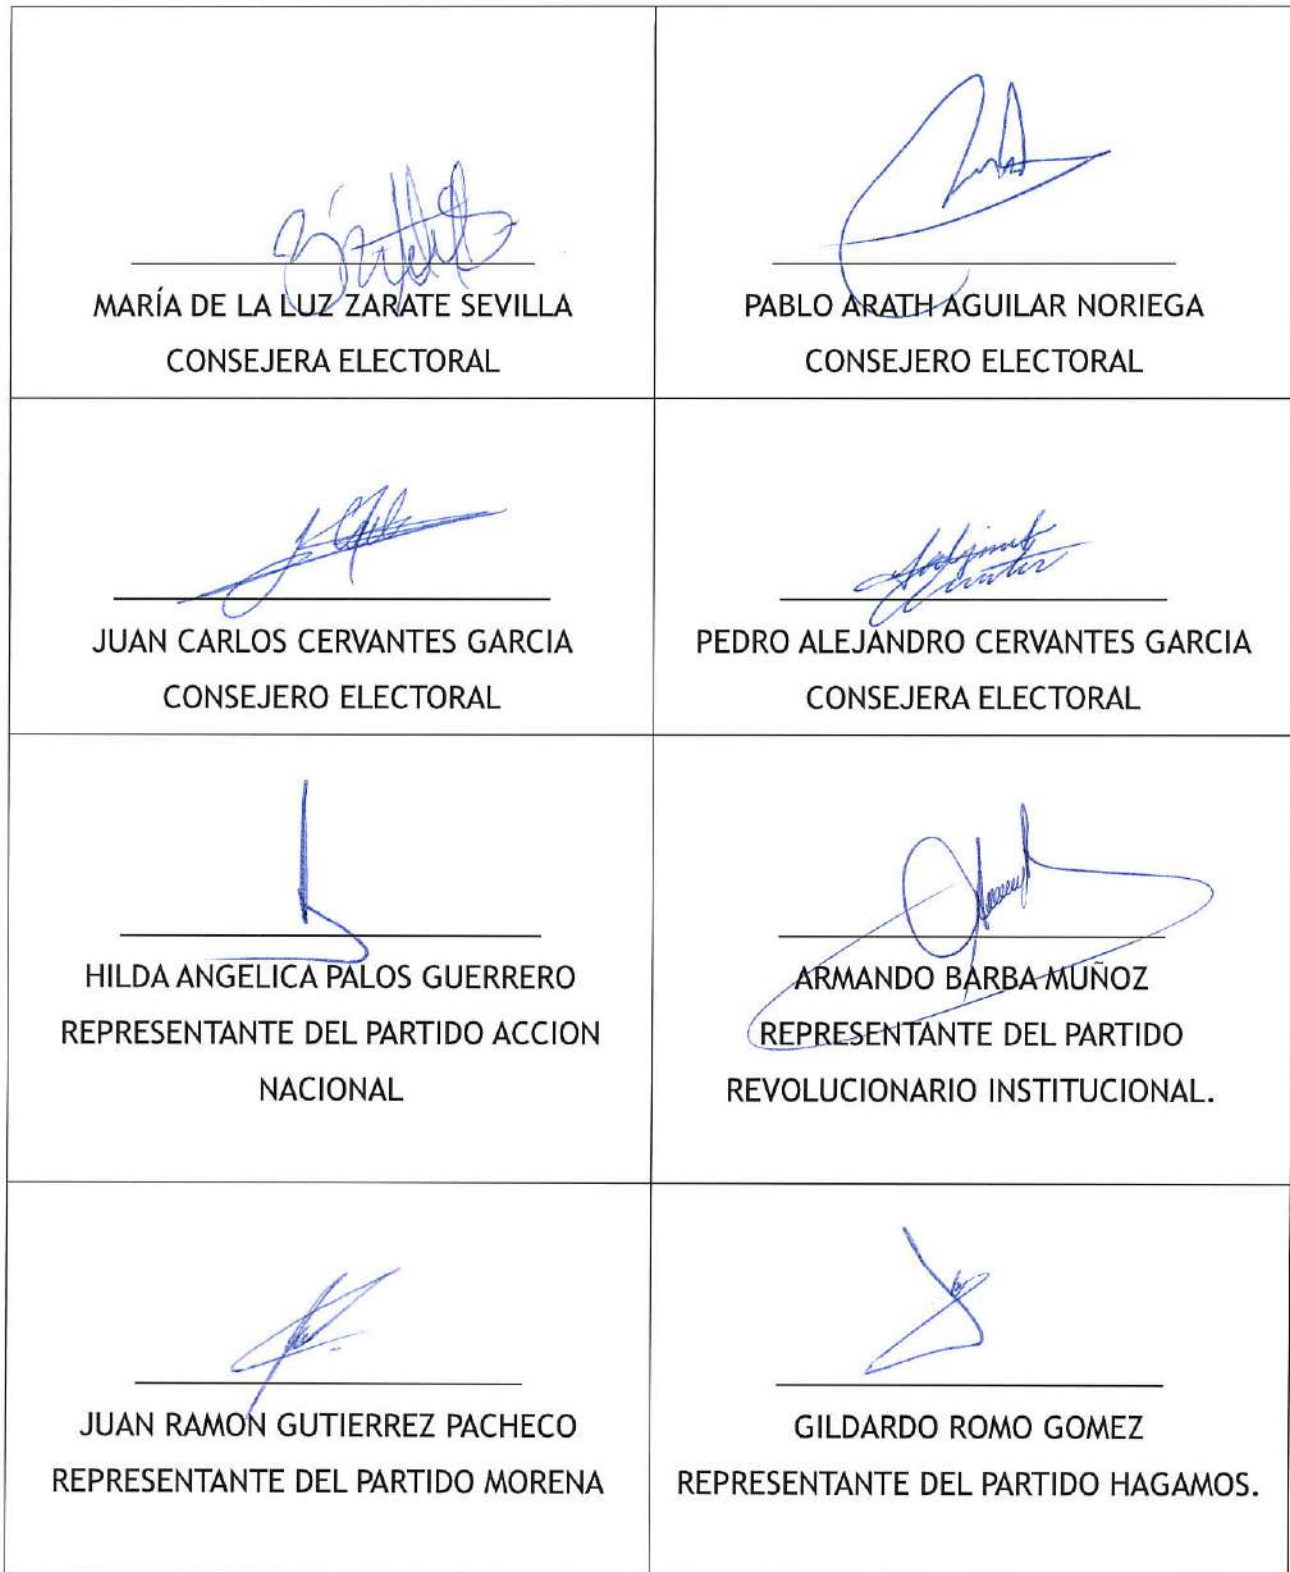 MARÍA DE LA LUZ ZARATE SEVILLA
CONSEJERA ELECTORAL
PABLO ARATH AGUILAR NORIEGA
CONSEJERO ELECTORAL
JUAN CARLOS CERVANTES GARCIA
CONSEJERO ELECTORAL
PEDRO ALEJANDRO CERVANTES GARCIA
CONSEJERA ELECTORAL
HILDA ANGELICA PALOS GUERRERO
REPRESENTANTE DEL PARTIDO ACCION
NACIONAL
ARMANDO BARBA MUÑOZ
REPRESENTANTE DEL PARTIDO
REVOLUCIONARIO INSTITUCIONAL.
JUAN RAMON GUTIERREZ PACHECO
REPRESENTANTE DEL PARTIDO MORENA
GILDARDO ROMO GOMEZ
REPRESENTANTE DEL PARTIDO HAGAMOS.